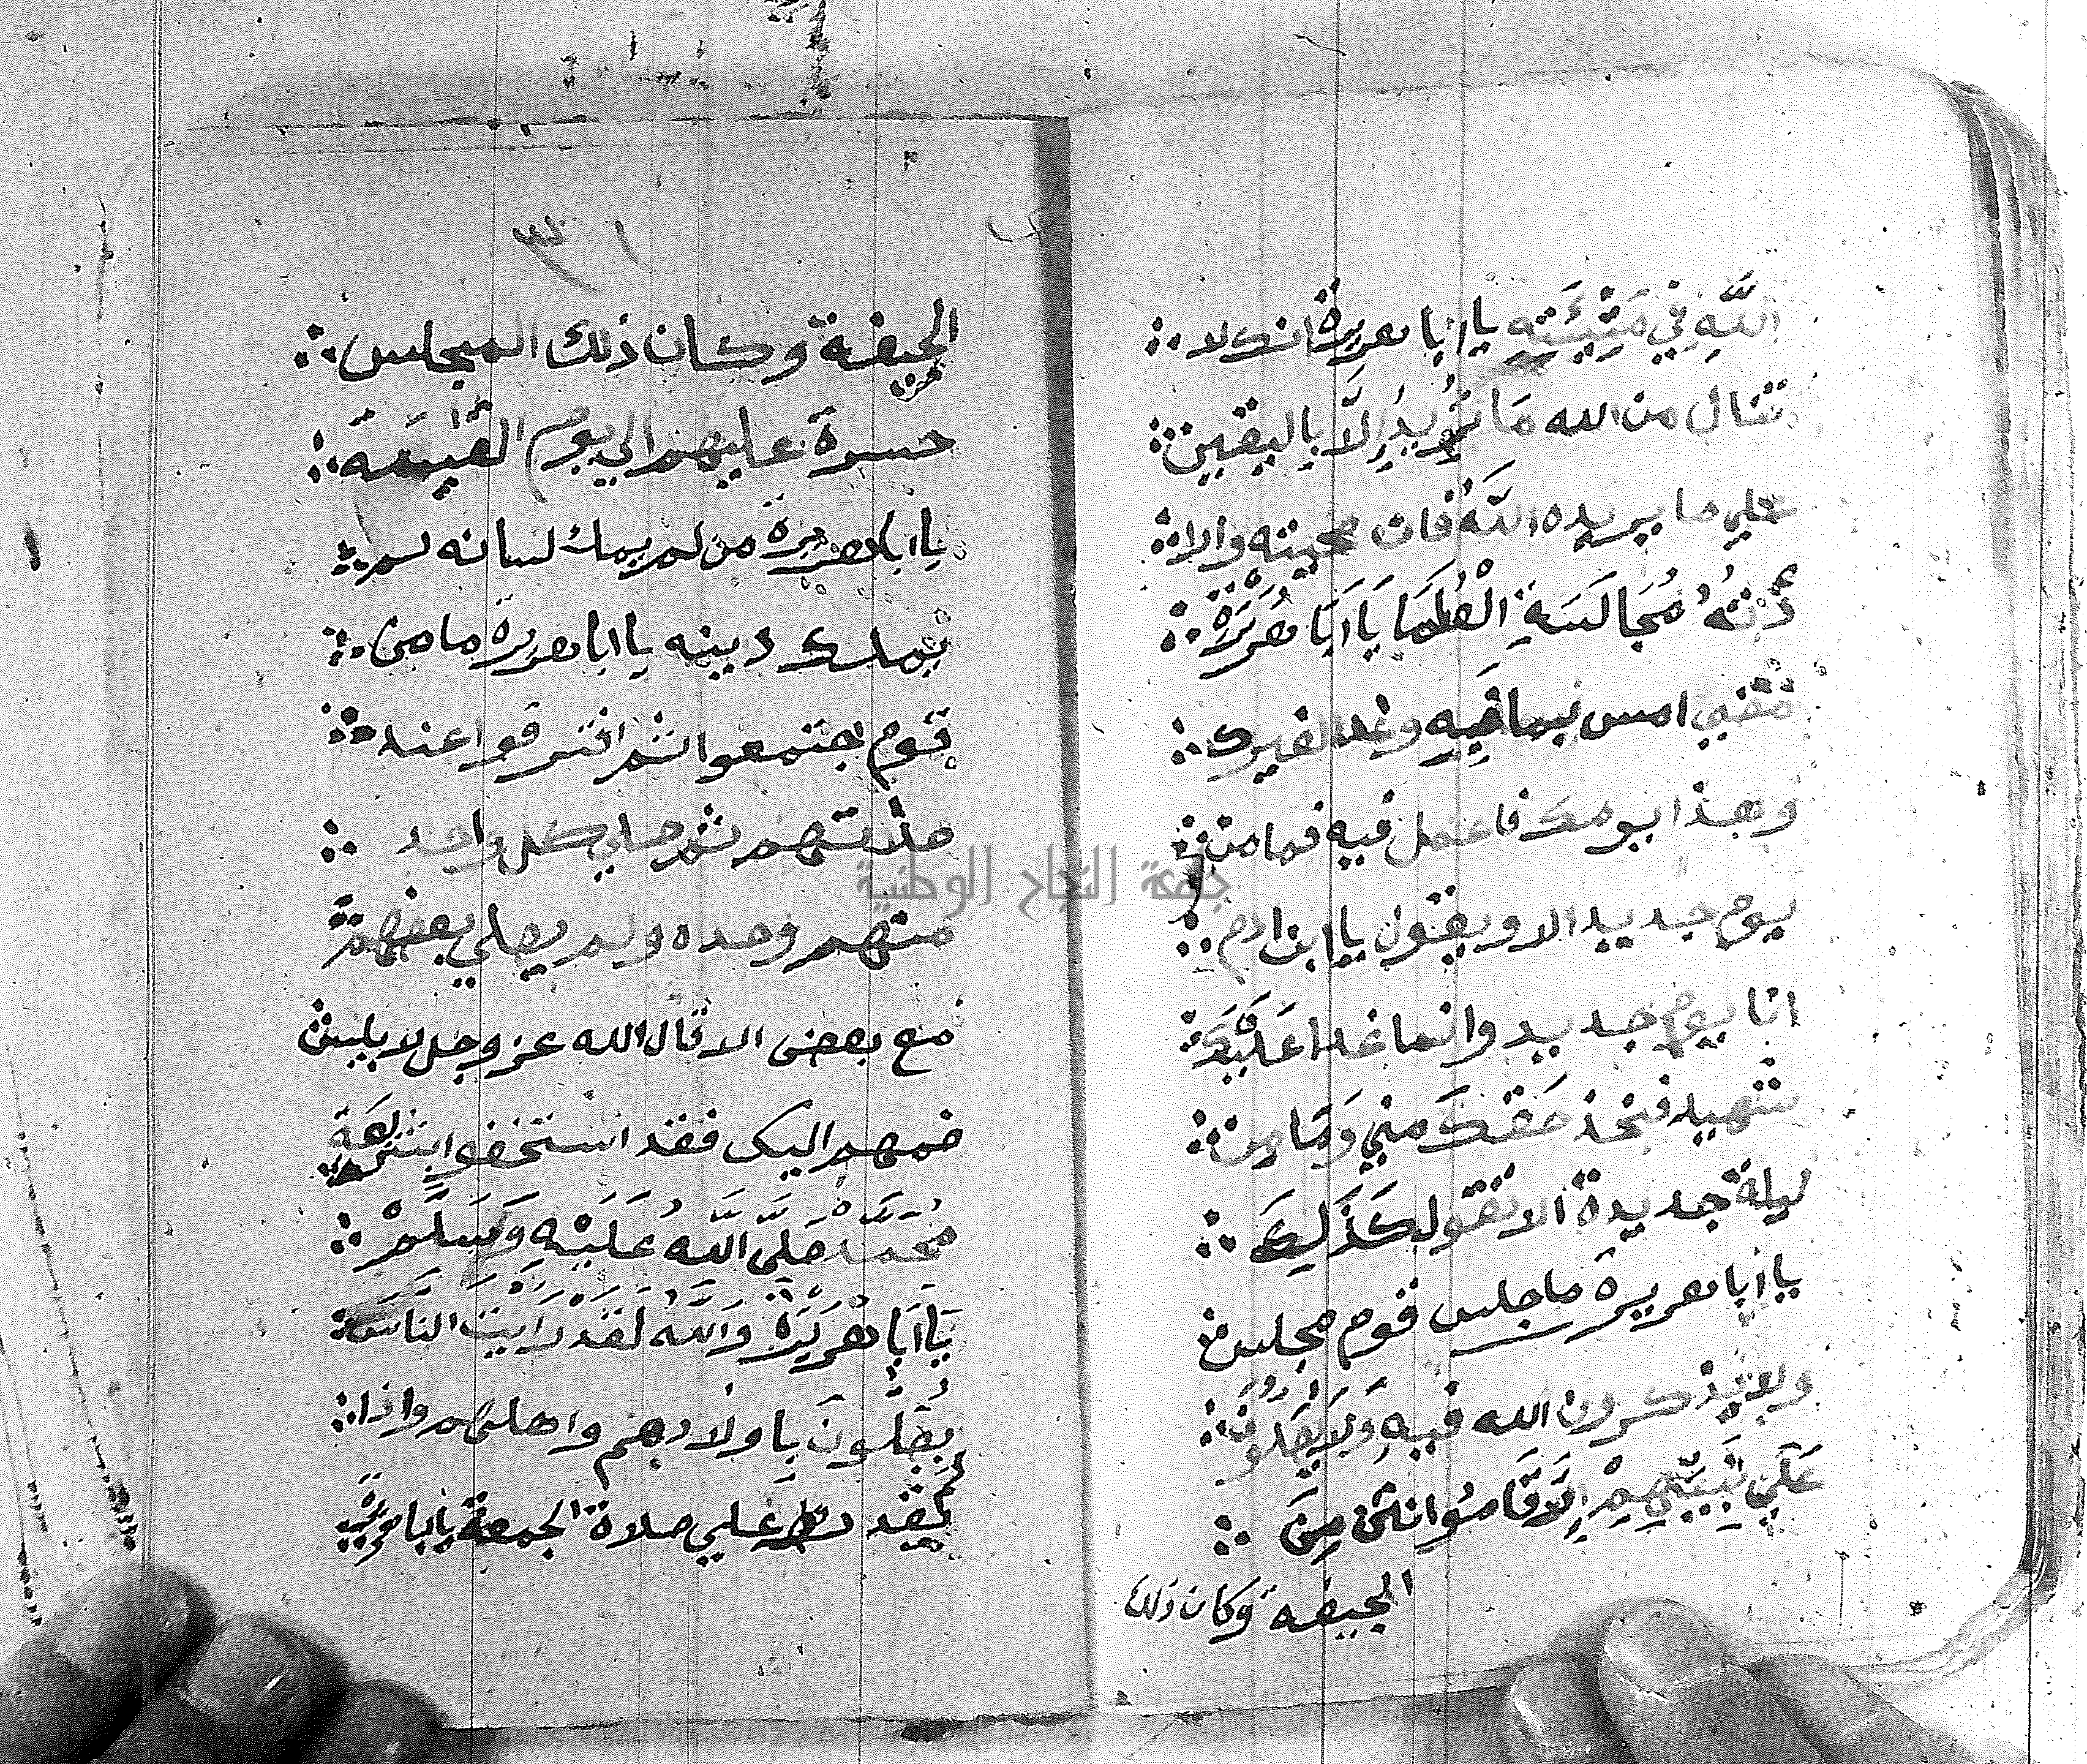 اللَّهِ فِي مَشِيْئَتِهِ يا ابا هريرة انك لا
تنال من الله مَا تُرِيدُ إِلَّا بِاليقين
على ما يريده اللَّهُ فان محبته والا
مُجَالَسَةِ الْعُلَمَا يَا اَبَا هُرَيْرَة
امس بما فِيهِ وغدا لغيرك
وهذا يومك فاعمل فيه فما من
يوم جديد الا ويقول يا ابن ادم
انا يوم جديد وانما غدا عَلَيْكَ
شهيد فخذ حَقكَ مني وَمَا من
ليلة جديدة الا تقول كَذَلِكَ
يا ابا هريرة ما جلس قوم مجلس
الله فيهِ وَلَا يُصَلُّونَ
عَلَي نَبِيِّهِمْ إِلَّا قَامُوا انتن مِنَ
الجيفة وكان ذلك
٣١
الجيفة وكان ذلك المجلس
حسرة عليهم الي يوم القيمة
يا ابا هريرة من لم يمك لسانه لم
يملك دينه يا ابا هريرة ما من
قوم اجتمعوا ثم افترقوا عند
صلاتهم ثم صلي كل واحد
منهم وحده ولم يصلي بعضهم
مع بعض الا قال الله عز وجل لابليس
ضمهم اليك فقد استخفوا
مُحَمَّد صَلَّى اللَّهُ عَلَيْهِ وَسَلَّمْ
يَا اَبَا هُرَيْرَة وَاللَّه لَقَدْ رَايْتَ النَّاسَ
يُصَلُّونَ باولادهم واهلهم واذا
لم يقدر علي صلاة الجمعة يا ابا هريرة
جامعة النجاح الوطنية